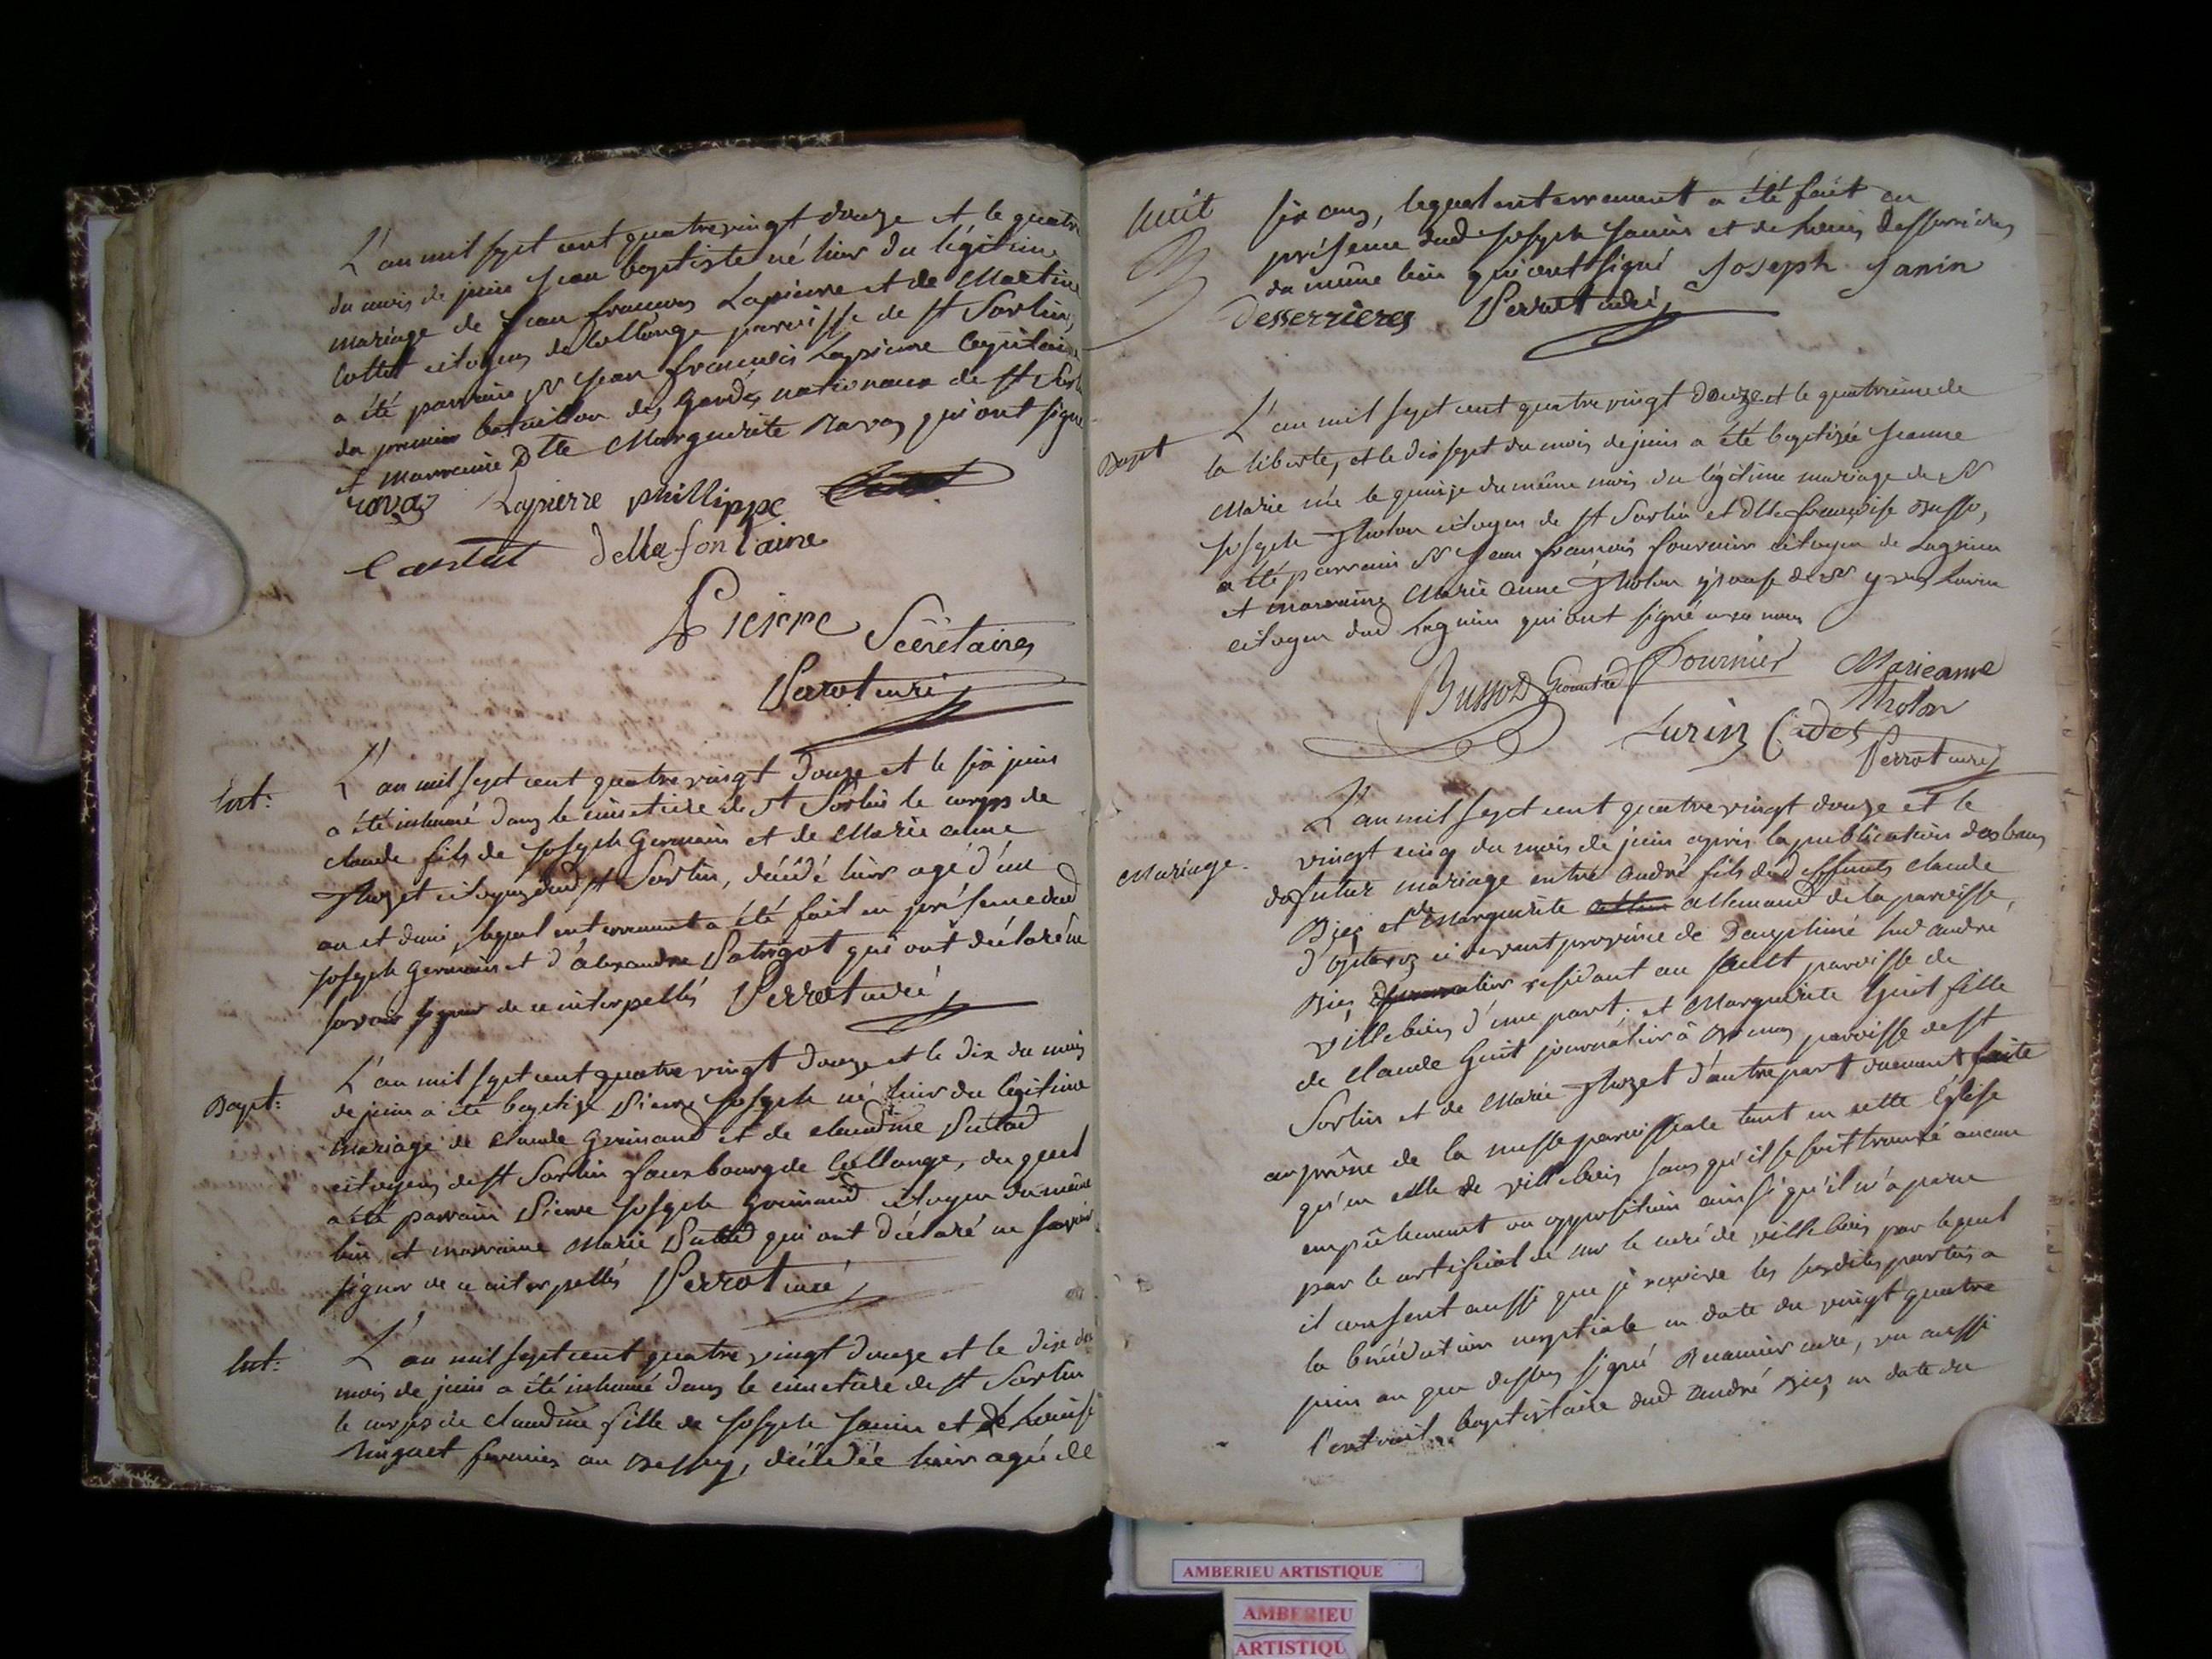 L'an mil sept cent quatre vingt douze et le quatre
du mois de juin jean baptiste né hier du légitime
mariage de jean françois Lapierre et de Martine
Collet citoyens de Collonge paroisse de st Sorlin,
a été parrain Sr jean françois Lapierre Capitaine
du premier bataillon des Gardes nationaux de st Sorlin
et marraine Dlle Marguerite Ravaz qui ont signé
ravaz Lapierre phillippe
dellafontaine
Pierre Secrétaires
Perrot curé
Ent:
L'an mil sept cent quatre vingt douze et le six juin
a été inhumé dans le cimetiere de st Sorlin le corps de
claude fils de joseph Germain et de Marie anne
Thozet citoyens dud st Sorlin, décédé hier agé d'un
an et demi, lequel enterrement a été fait en présence dud
joseph Germain et d'alexandre qui ont déclaré ne
savoir signer de ce interpellés Perrot curé
Bapt:
L'an mil sept cent quatre vingt douze et le dix du mois
de juin a été baptizé Pierre joseph né hier du légitime
mariage de claude Grimaud et de claudine
citoyens de st Sorlin fauxbourg de Collonge, du quel
a été parrain Pierre joseph Grimaud citoyen du même
lieu et marraine Marie qui ont déclaré ne savoir
signer de ce interpellés Perrot curé
Ent:
L'an mil sept cent quatre vingt douze et le dix du
mois de juin a été inhumé dans le cimetiere de st Sorlin
le corps de claudine fille de joseph janin et de Louise
fermier au, décédée hier agée de
huit
six ans, lequel enterrement a été fait en
présence dud joseph janin et de Louis desserrières
du même lieu qui ont signé Joseph Janin
Desserrieres Perrot curé
Bapt
L'an mil sept cent quatre vingt douze et le quatrieme de
la liberté, et le dix sept du mois de juin a été baptizée jeanne
Marie née le quinze du même mois du légitime mariage de Sr
joseph Tholon citoyen de st Sorlin et dlle françoise Busso,
a été parrain Sr jean françois fournier citoyen de Lagnieu
et marraine Marie anne Tholon épouse de Sr
citoyen dud Lagnieu qui ont signé avec nous
Bussoz Fournier Marieanne
Tholon
Perrot curé
Mariage.
L'an mil sept cent quatre vingt douze et le
vingt cinq du mois de juin après la publication des bans
du futur mariage entre andré fils de deffunts claude
et de Marguerite allemand de la paroisse,
d'optevoz ci devant province de Dauphiné led andré
résidant au Sault paroisse de
villebois d'une part; et Marguerite Guit fille
de claude Guit journalier à paroisse de st
Sorlin et de Marie Thozet d'autre part duement faite
au prône de la messe paroissiale tant en cette Église
qu'en celle de villebois sans qu'il se soit trouvé aucun
empêchement ou opposition ainsi qu'il m'a paru
par le certificat de mr le curé de villebois par lequel
il consent aussi que je reçoive les susdites parties a
la bénédiction nuptiale en date du vingt quatre
juin an que dessus signé curé, vu aussi
l'extrait baptistaire dud andré en date du
AMBERIEU ARTISTIQUE
AMBERIEU
ARTISTIQU